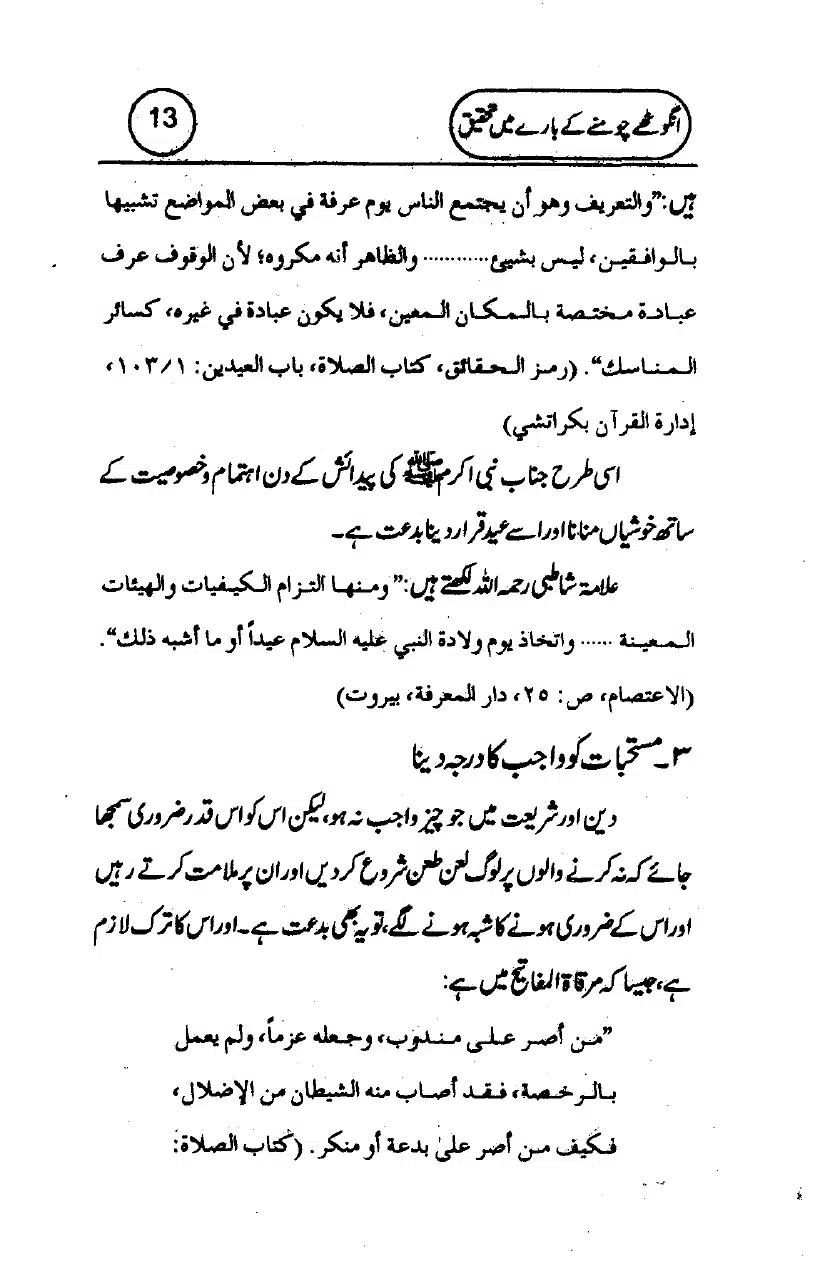 انگوٹھے چومنے کے بارے میں تحقیق
13
ہیں: ”والتعريف وهو أن يجتمع الناس يوم عرفة في بعض المواضع تشبيها
بالوافقين، ليس بشيئ............ والظاهر أنه مكروه؛ لأن الوقوف عرف
عبادة مختصة بالمكان المعين، فلا يكون عبادة في غيره، كسائر
المناسك“. (رمز الحقائق، كتاب الصلاة، باب العيدين: ١/١٠٣،
إدارة القرآن بكراتشي)
اسی طرح جناب نبی اکرم ﷺ کی پیدائش کے دن اہتمام وخصوصیت کے
ساتھ خوشیاں منانا اور اسے عید قرار دینا بدعت ہے۔
علامۃ شاطبی رحمہ اللہ لکھتے ہیں: ”ومنها التزام الكيفيات والهيئات
المعينة ...... واتخاذ يوم ولادة النبي عليه السلام عيداً أو ما أشبه ذلك“.
(الاعتصام، ص: ٢٥، دار المعرفة، بيروت)
۳۔ مستحبات کو واجب کا درجہ دینا
دین اور شریعت میں جو چیز واجب نہ ہو، لیکن اس کو اس قدر ضروری سمجھا
جائے کہ نہ کرنے والوں پر لوگ لعن طعن شروع کردیں اور ان پر ملامت کرتے رہیں
اور اس کے ضروری ہونے کا شبہ ہونے لگے، تو یہ بھی بدعت ہے۔ اور اس کا ترک لازم
ہے، جیسا کہ مرقاۃ المفاتیح میں ہے:
”من أصر على مندوب، وجعله عزماً، ولم يعمل
بالرخصة، فقد أصاب منه الشيطان من الإضلال،
فكيف من أصر علىٰ بدعة أو منكر. (كتاب الصلاة: